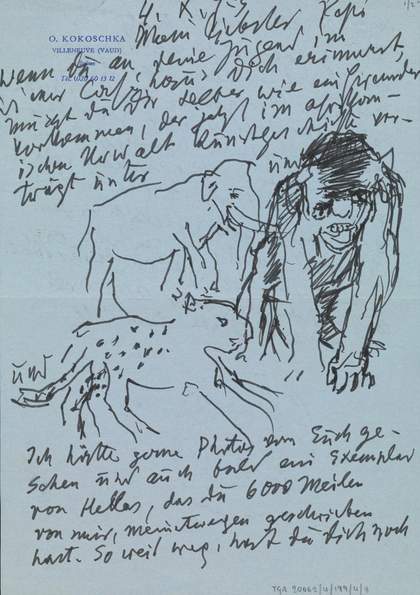 O. KOKOSCHKA
VILLENEUVE (VAUD)
Tél. (021) 60 13 12
Mein liebster
wenn Du an deine Jugend im
Dich erinnerst,
mußt du Dir selber wie ein
vorkommen, der jetzt im afrikan-
ischen Urwald Kunstgeschichte vor-
trägt unter
und
und
Ich hätte gerne Photos von Euch ge-
sehen und auch bald ein Exemplar
von Hellas, das du 6000 Meilen
von mir, meinetwegen geschrieben
hast. So weit weg, hast du Dich noch
TGA 20062/4/199/4/9